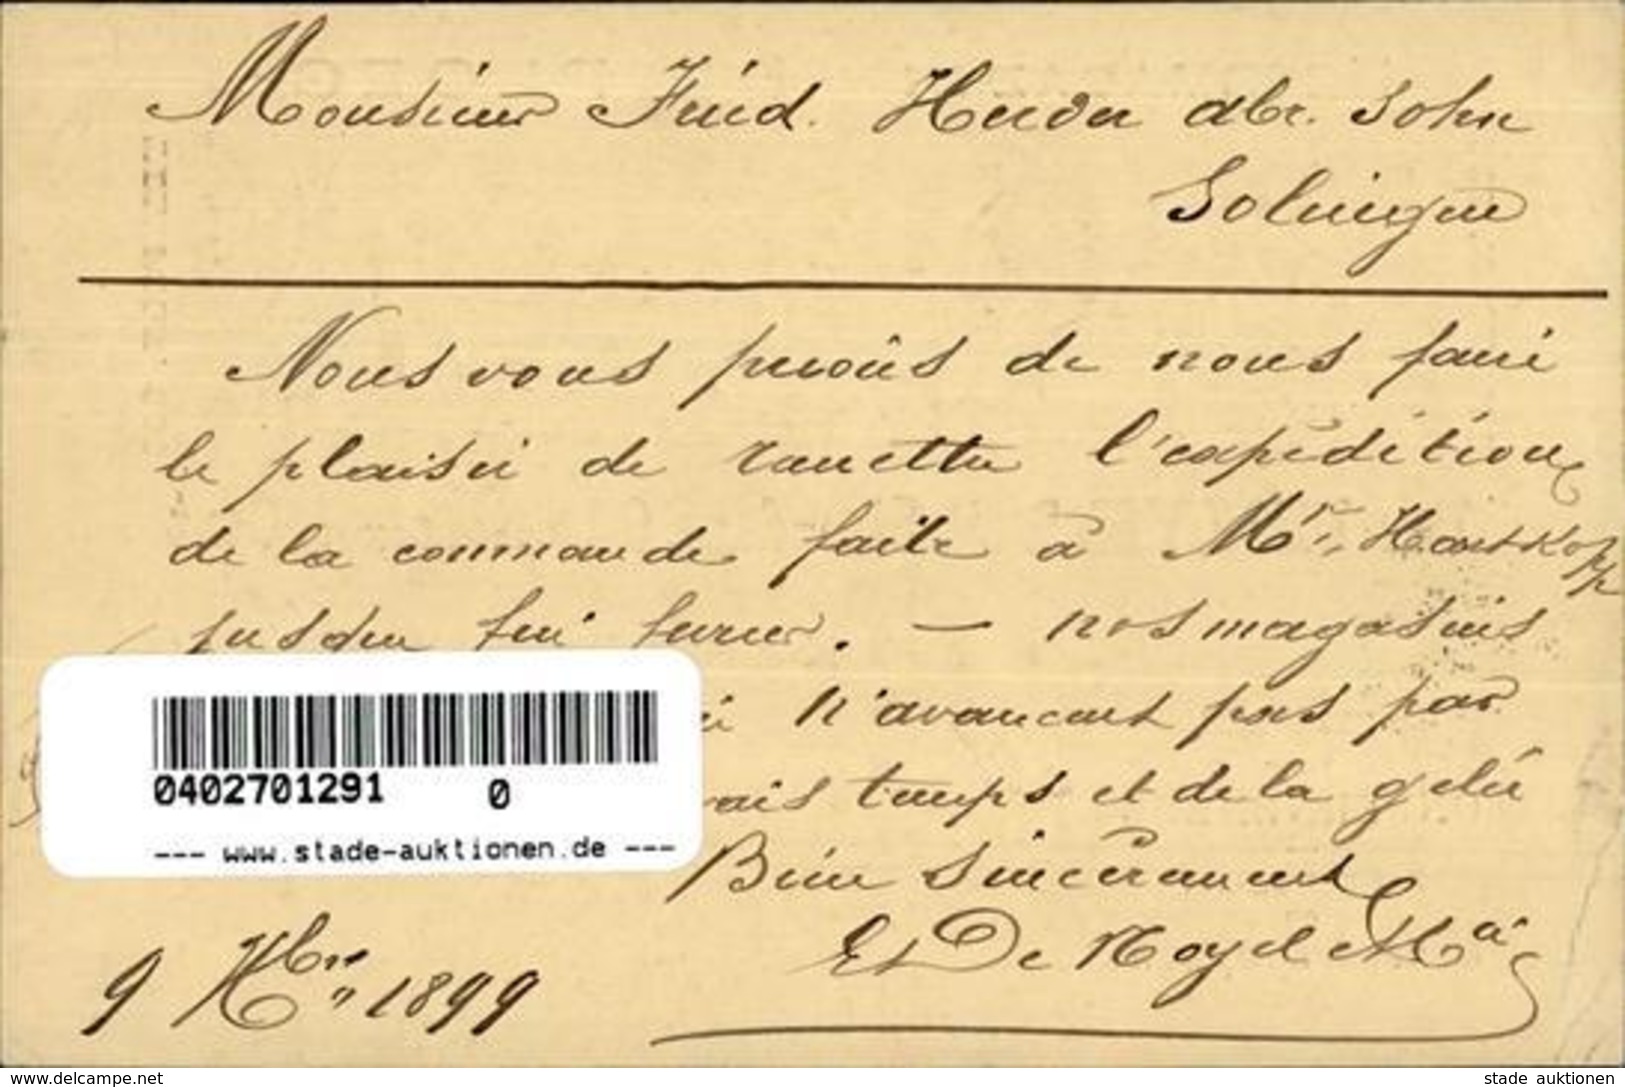 Monsieur Fried. Herder abr. Sohn
Solingen
Nous vous prions de nous faire
le plaisir de remettre l'expédition
de la commande faite à Mr. Hartkopf
jusqu'en fin fevrier. — nos magasins
n'avancent pas par
temps et de la gelée
Bien sincèrement
De Noyel
9 Xbre 1899
0402701291 0
--- www.stade-auktionen.de ---
www.delcampe.net
stade auktionen